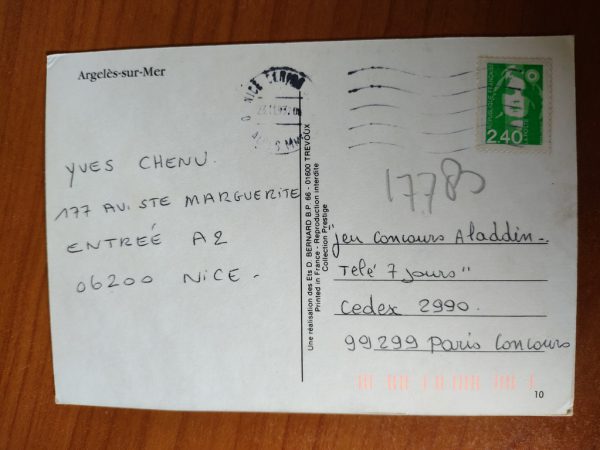 Argelès-sur-Mer
NICE CENTRE
YVES CHENU.
177 AV. STE MARGUERITE
ENTREÉ A2
06200 NICE -
Une réalisation des Ets D. BERNARD B.P. 66 - 01600 TREVOUX
Printed in France - Reproduction interdite
Collection Prestige
2.40
17785
jeu Concours Aladdin -
Télé 7 jours"
Cedex 2990.
99299 Paris Concours
10